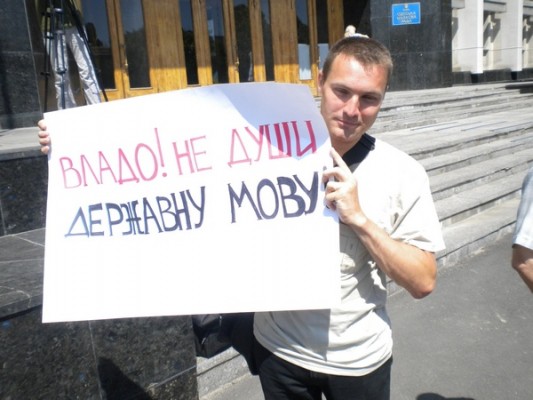 ВЛАДО! НЕ ДУШИ
ДЕРЖАВНУ МОВУ